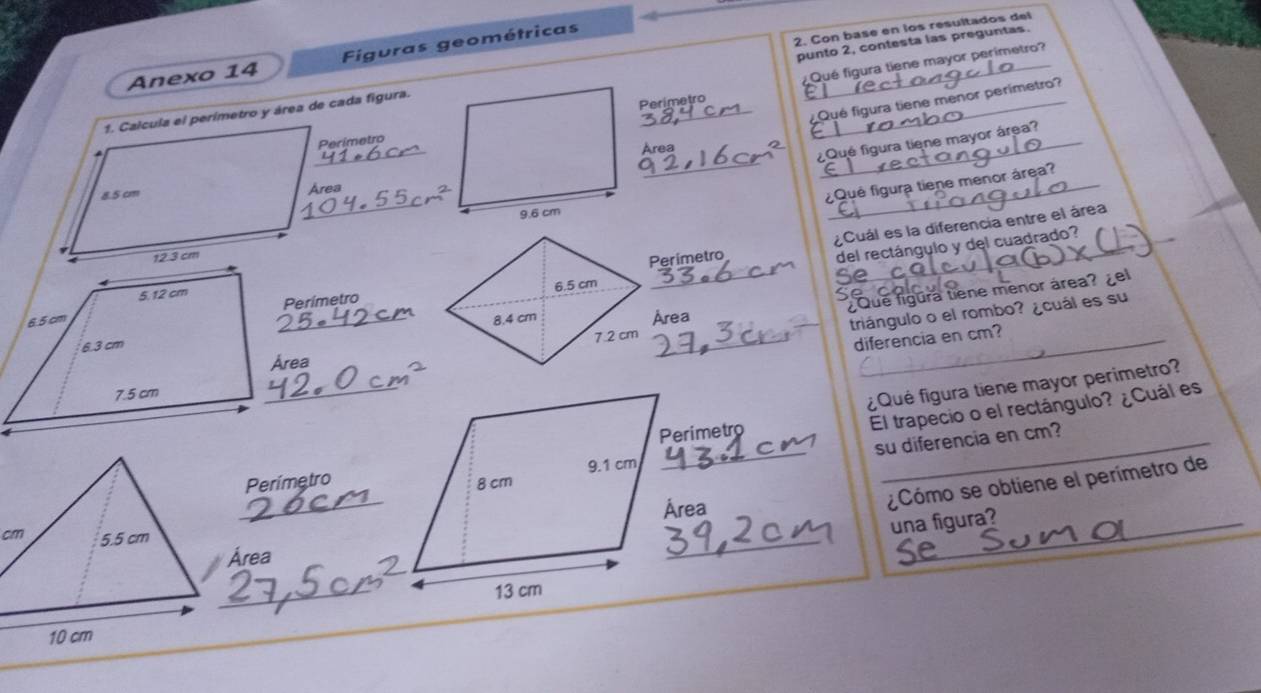 Anexo 14
Figuras geométricas
1. Calcula el perímetro y área de cada figura.
8.5 cm
12.3 cm
Perímetro
41.6 cm
Área
104.55 cm²
9.6 cm
Perímetro
38,4 cm
Área
92,16 cm²
5.12 cm
6.5 cm
6.3 cm
7.5 cm
Perímetro
25.42 cm
Área
42.0 cm²
6.5 cm
8.4 cm
7.2 cm
Perímetro
33.6 cm
Área
27,3 cm²
cm
5.5 cm
10 cm
Perímetro
26 cm
Área
27,5 cm²
8 cm
9.1 cm
13 cm
Perímetro
43.1 cm
Área
39,2 cm
2. Con base en los resultados del
punto 2, contesta las preguntas.
¿Qué figura tiene mayor perímetro?
El rectangulo
¿Qué figura tiene menor perímetro?
El rombo
¿Qué figura tiene mayor área?
El rectangulo
¿Qué figura tiene menor área?
El triangulo
¿Cuál es la diferencia entre el área
del rectángulo y del cuadrado?
Se calcula (b) x (L)
Se calculo L
¿Que figura tiene menor área? ¿el
triángulo o el rombo? ¿cuál es su
diferencia en cm?
El
¿Qué figura tiene mayor perímetro?
El trapecio o el rectángulo? ¿Cuál es
su diferencia en cm?
¿Cómo se obtiene el perímetro de
una figura?
Se suma